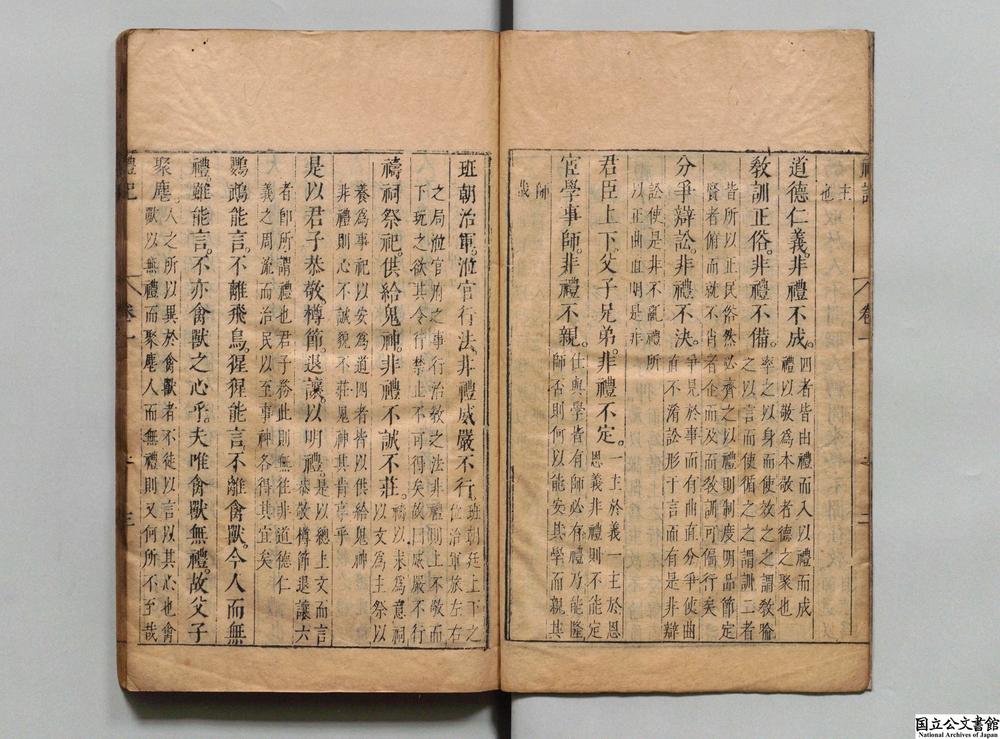 禮記 卷一 二
主
也
道德仁義。非禮不成。
四者皆由禮而入以禮而成
禮以敬為本敬者德之聚也
敎訓正俗。非禮不備。
率之以身而使效之之謂敎喻
之以言而使循之之謂訓二者
皆所以正民俗然必齊之以禮則制度明品節定
賢者俯而就不肖者企而及而敎訓可備行矣
分爭辯訟。非禮不決。
爭見於事而有曲直分爭使曲
直不淆訟形于言而有是非辯
訟使是非不亂禮所
以正曲直明是非
君臣上下。父子兄弟。非禮不定。
一主於義一主於恩
恩義非禮則不能定
宦學事師。非禮不親。
仕與學皆有師必有禮乃能隆
師否則何以能安其學而親其
師
哉
班朝治軍。涖官行法。非禮威嚴不行。
班朝廷上下之
位治軍旅左右
之局涖官府之事行治敎之法非禮則上不敬而
下玩之欲其令行禁止不可得矣故曰威嚴不行
禱祠祭祀。供給鬼神。非禮不誠不莊。
禱以求為意祠
以文為主祭以
養為事祀以安為道四者皆以供給鬼神
非禮則心不誠貌不莊鬼神其肯享乎
是以君子恭敬。樽節。退讓。以明禮。
是以總上文而言
恭敬樽節退讓六
者卽所謂禮也君子務此則無往非道德仁
義之周流而治民以至事神各得其宜矣
鸚鵡能言。不離飛鳥。猩猩能言。不離禽獸。今人而無
禮。雖能言。不亦禽獸之心乎。夫唯禽獸無禮。故父子
聚麀。
人之所以異於禽獸者不徒以言以其心也禽
獸以無禮而聚麀人而無禮則又何所不至哉
禮記 卷一 三
国立公文書館
National Archives of Japan